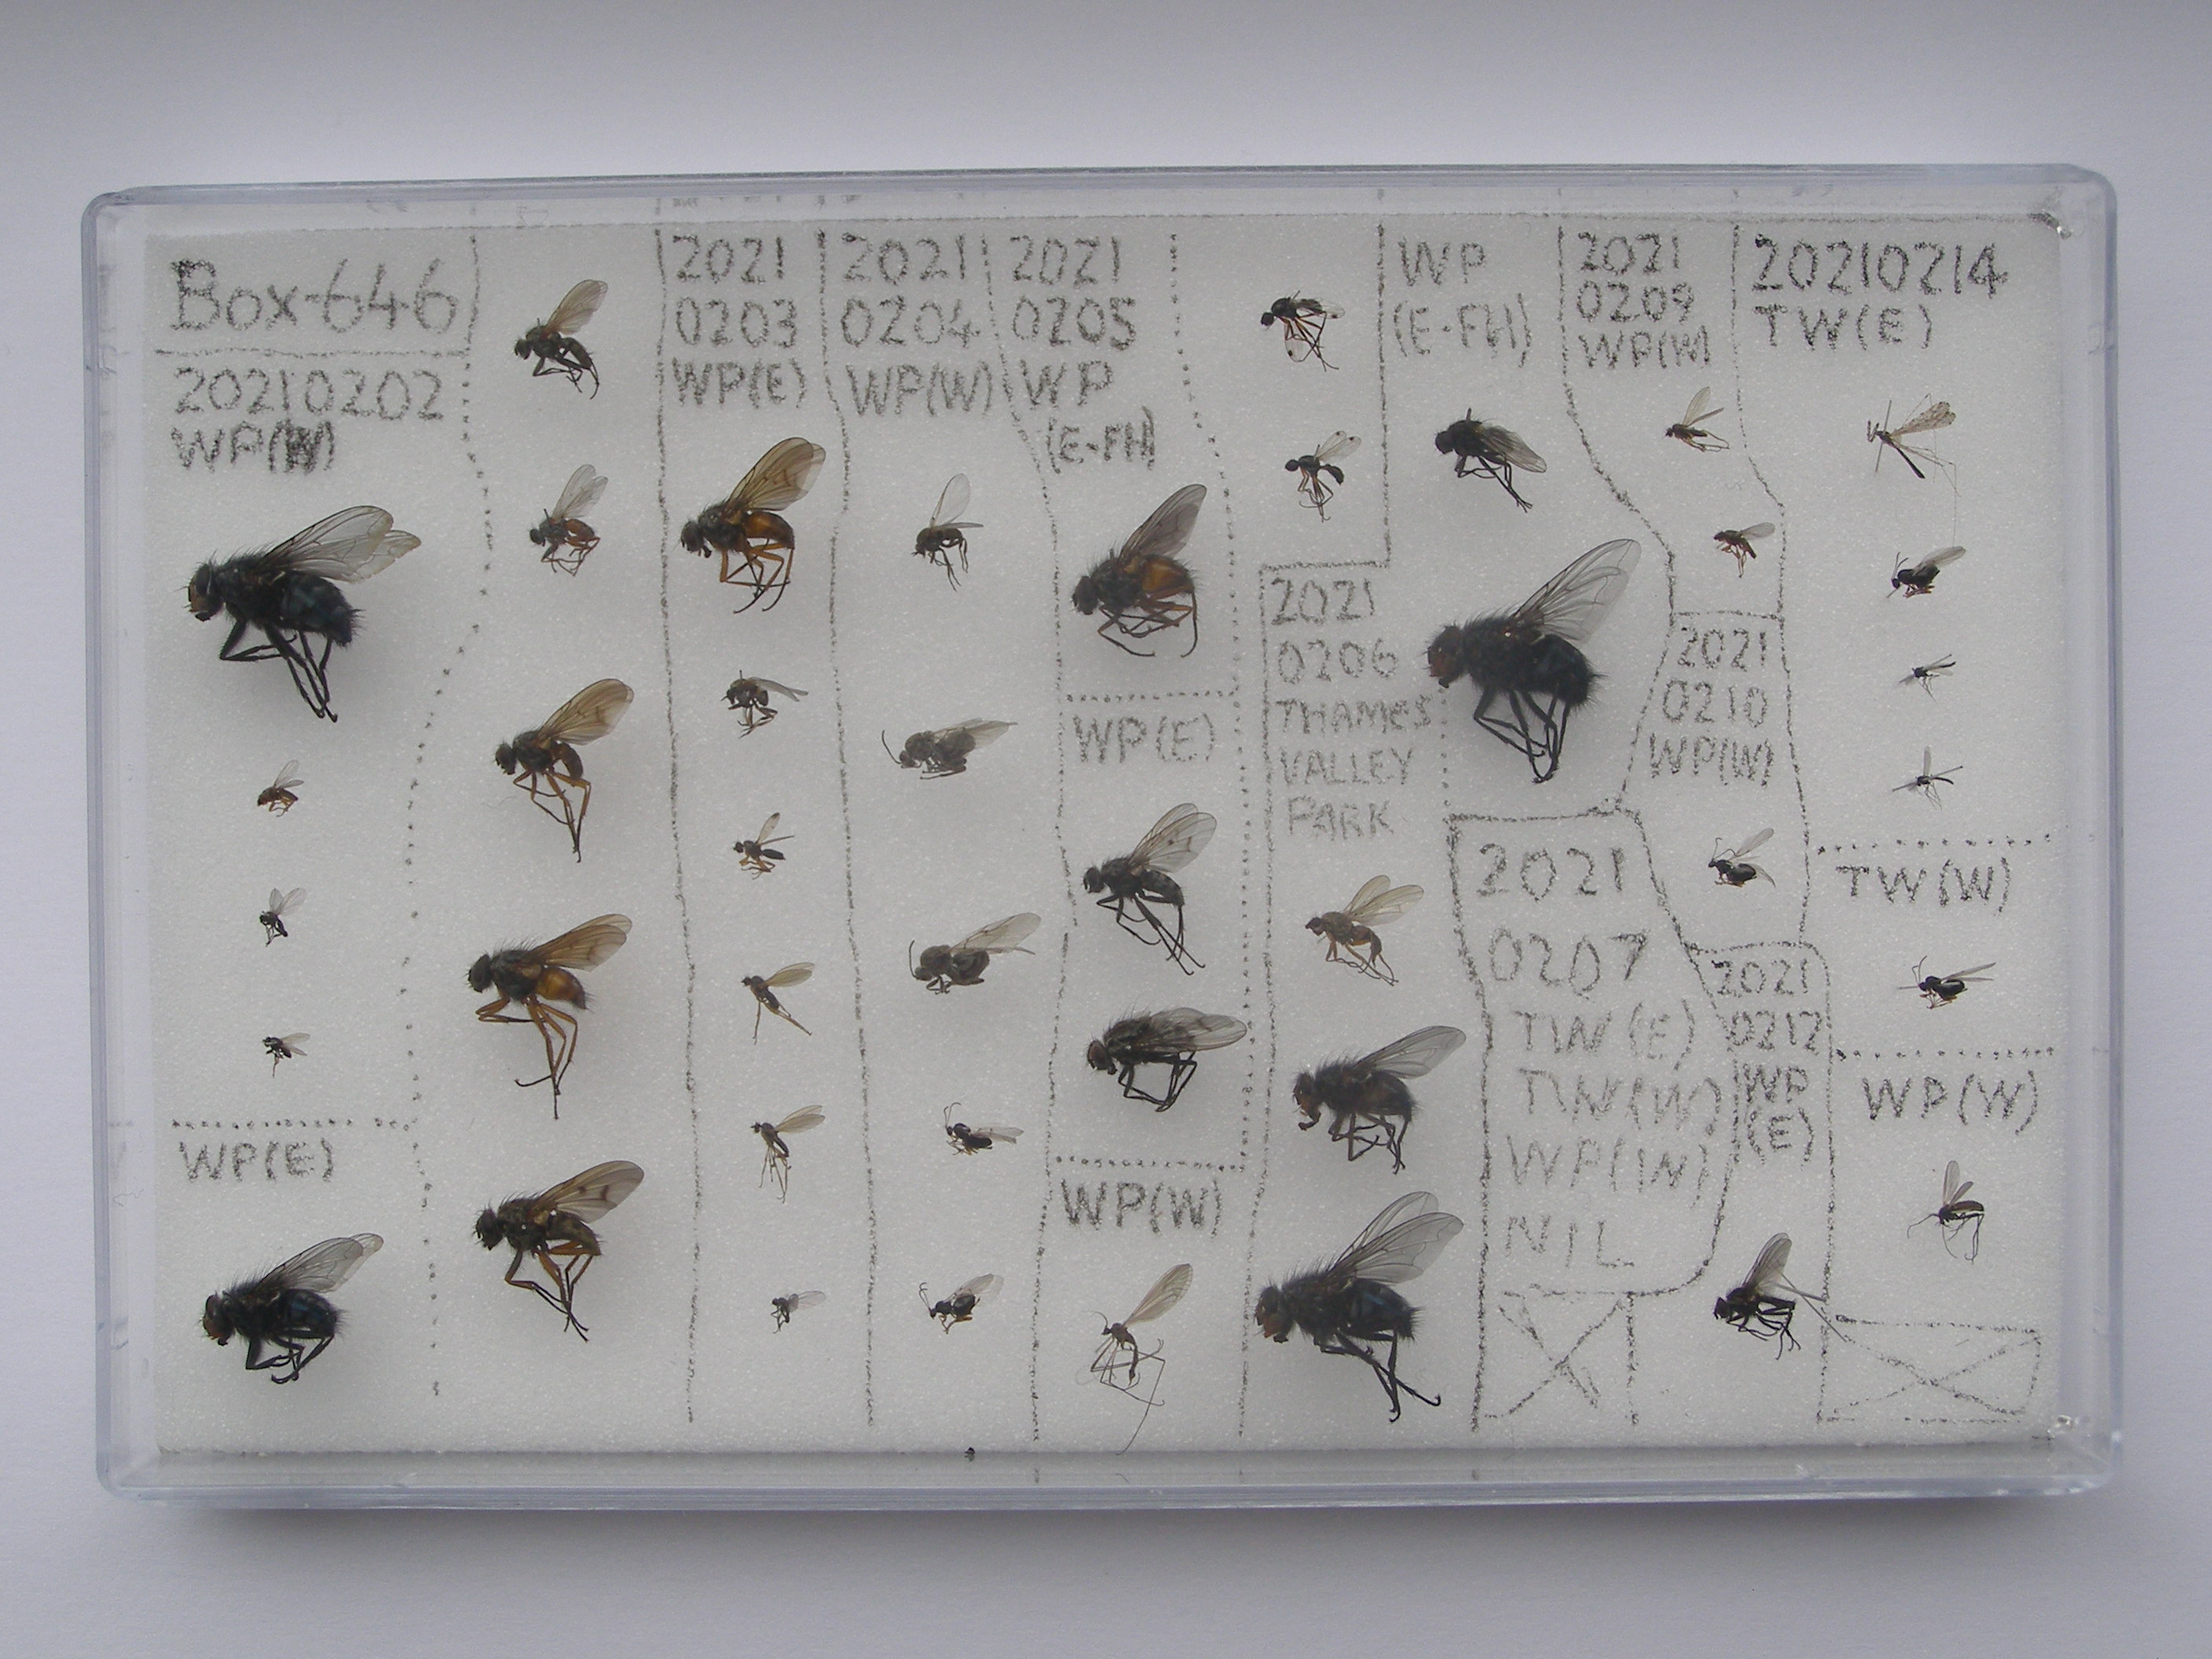 Box 646
20210202
WP(W)
WP(E)
2021
0203
WP(E)
2021
0204
WP(W)
2021
0205
WP
(E-FH)
WP(E)
WP(W)
2021
0206
THAMES
VALLEY
PARK
WP
(E-FH)
2021
0207
TW(E)
TW(W)
WP(W)
NIL
2021
0209
WP(W)
2021
0210
WP(W)
2021
0212
WP
(E)
20210214
TW(E)
TW(W)
WP(W)